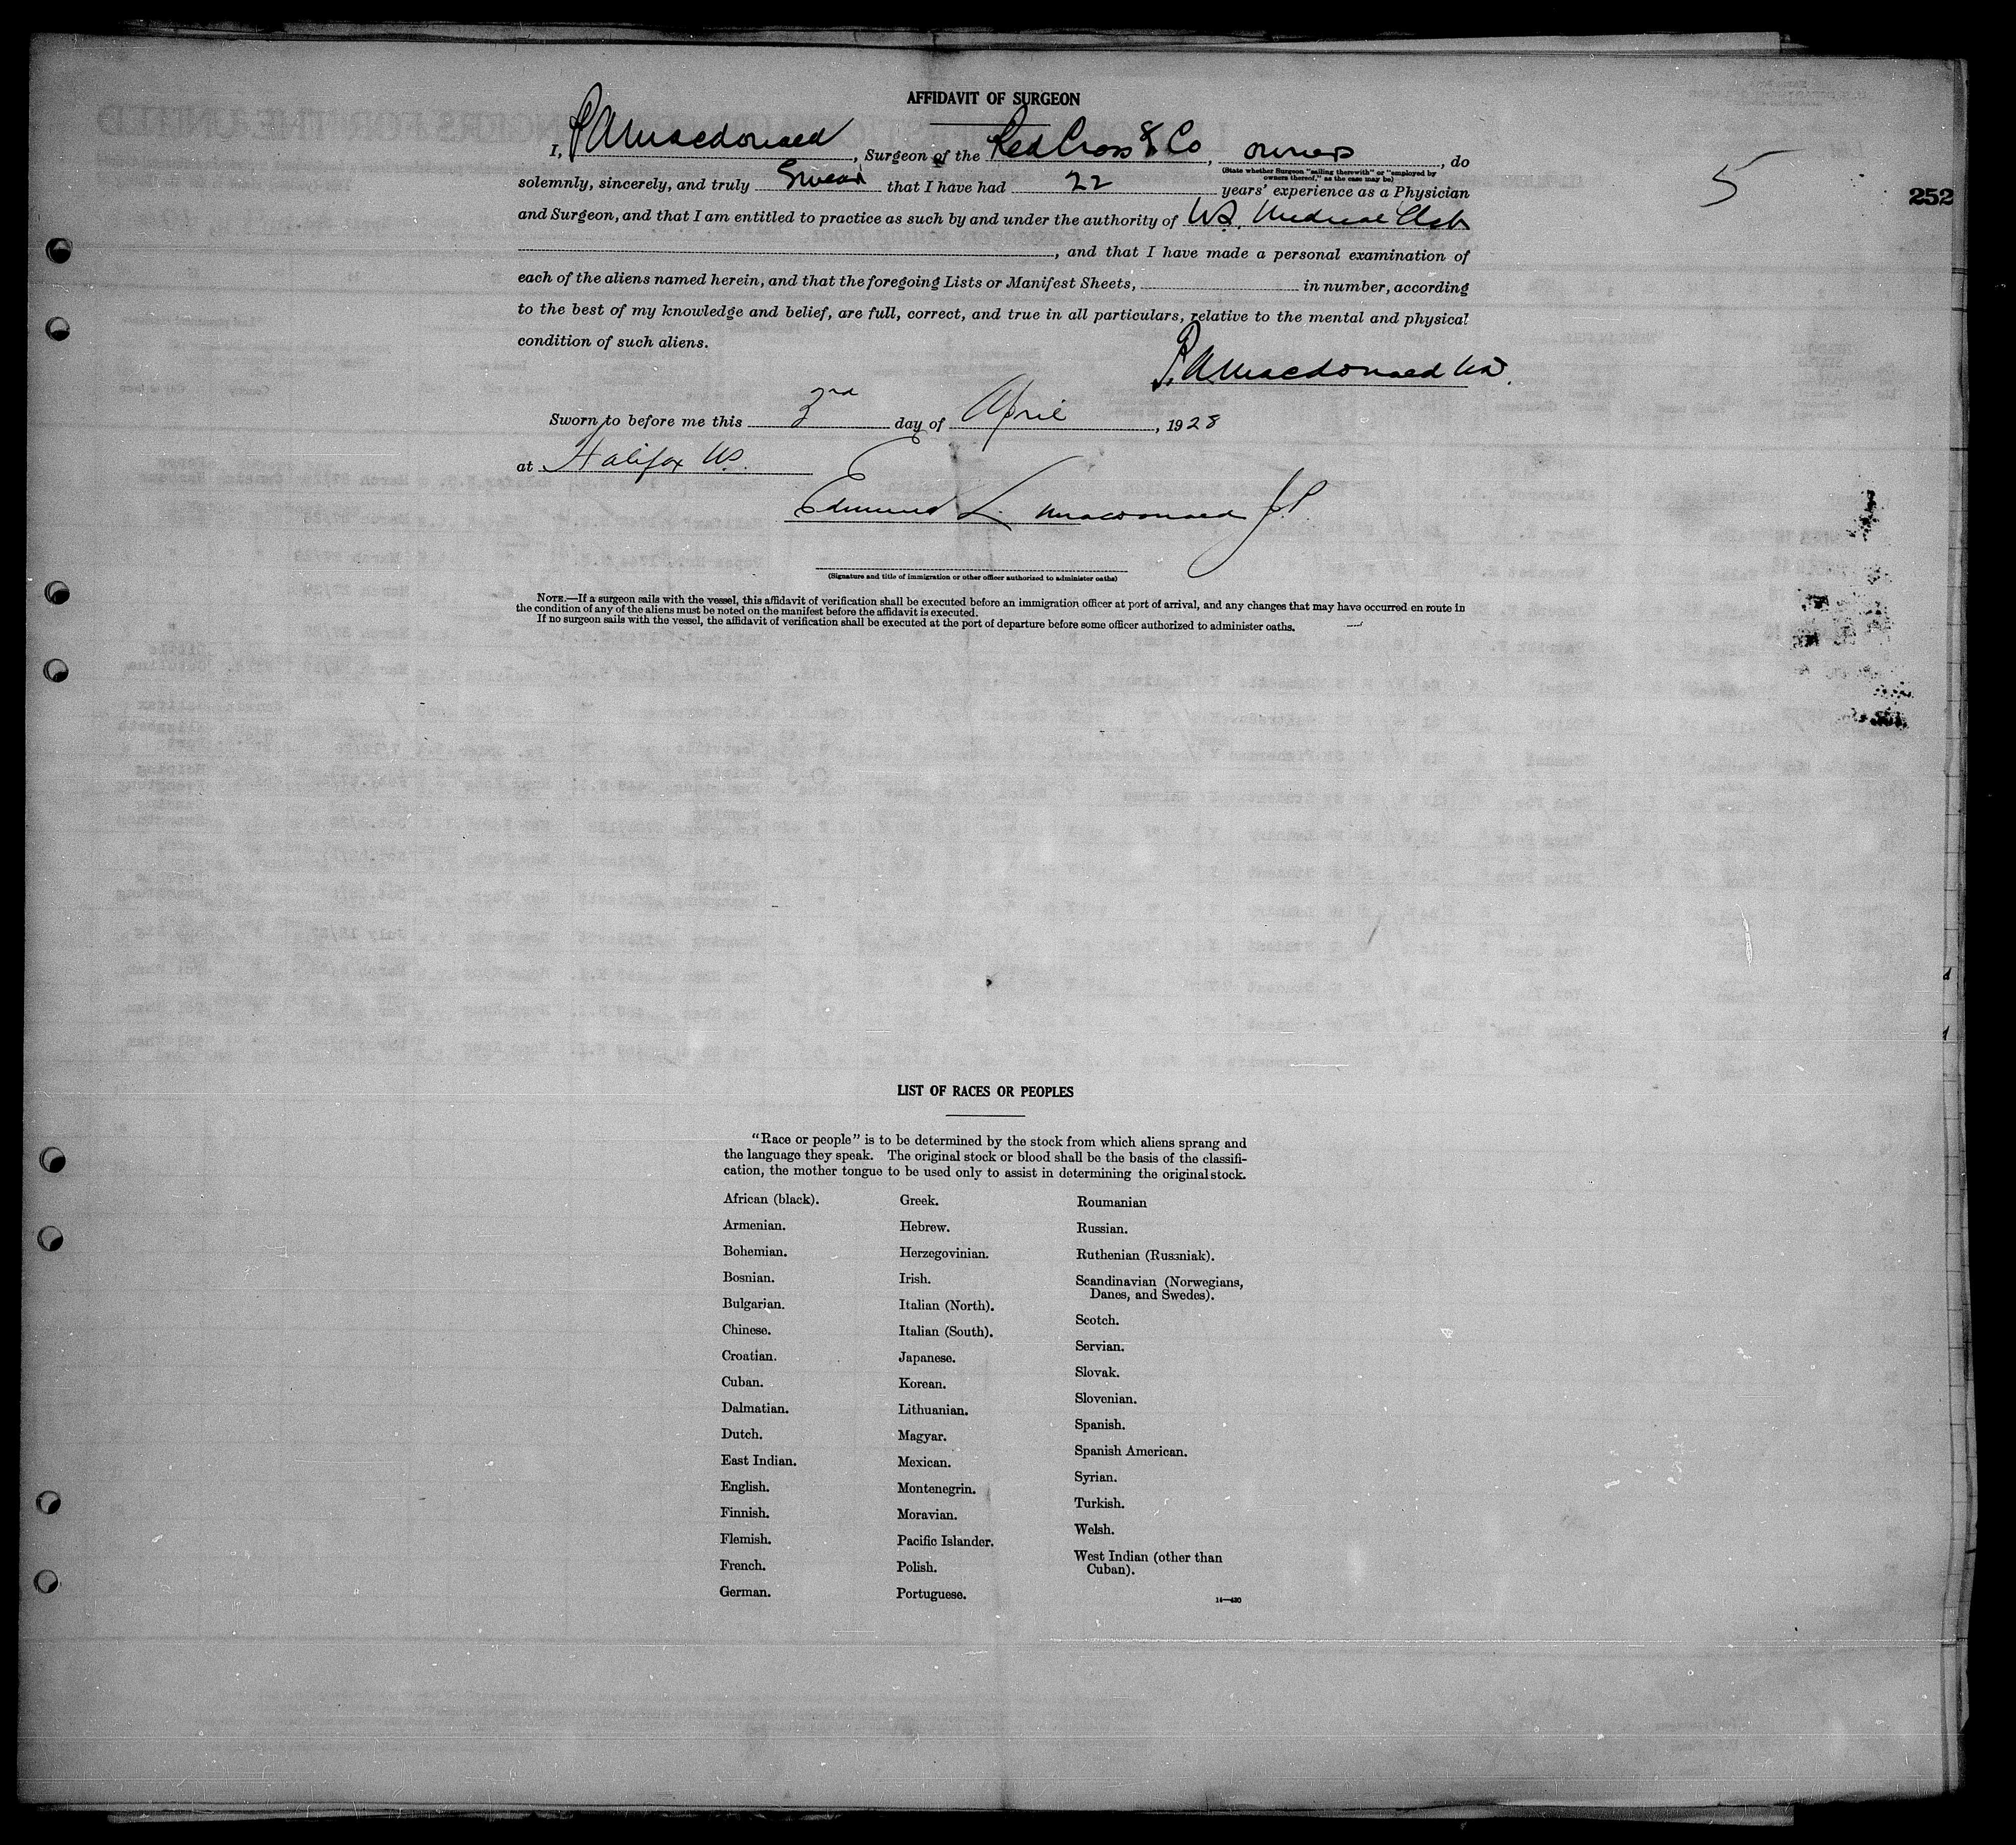 AFFIDAVIT OF SURGEON
I, P A Macdonald, Surgeon of the Red Cross S S Co, owners, do
(State whether Surgeon "sailing therewith" or "employed by
owners thereof," as the case may be)
solemnly, sincerely, and truly Swear that I have had 22 years' experience as a Physician
and Surgeon, and that I am entitled to practice as such by and under the authority of N.S. Medical
, and that I have made a personal examination of
each of the aliens named herein, and that the foregoing Lists or Manifest Sheets, in number, according
to the best of my knowledge and belief, are full, correct, and true in all particulars, relative to the mental and physical
condition of such aliens.
P. A Macdonald MD.
Sworn to before me this 3rd day of April, 1928
at Halifax N.S.
Edmund L. Macdonald JP
(Signature and title of immigration or other officer authorized to administer oaths)
NOTE.—If a surgeon sails with the vessel, this affidavit of verification shall be executed before an immigration officer at port of arrival, and any changes that may have occurred en route in
the condition of any of the aliens must be noted on the manifest before the affidavit is executed.
If no surgeon sails with the vessel, the affidavit of verification shall be executed at the port of departure before some officer authorized to administer oaths.
5
252
LIST OF RACES OR PEOPLES
"Race or people" is to be determined by the stock from which aliens sprang and
the language they speak. The original stock or blood shall be the basis of the classifi-
cation, the mother tongue to be used only to assist in determining the original stock.
African (black).
Armenian.
Bohemian.
Bosnian.
Bulgarian.
Chinese.
Croatian.
Cuban.
Dalmatian.
Dutch.
East Indian.
English.
Finnish.
Flemish.
French.
German.
Greek.
Hebrew.
Herzegovinian.
Irish.
Italian (North).
Italian (South).
Japanese.
Korean.
Lithuanian.
Magyar.
Mexican.
Montenegrin.
Moravian.
Pacific Islander.
Polish.
Portuguese.
Roumanian
Russian.
Ruthenian (Russniak).
Scandinavian (Norwegians,
Danes, and Swedes).
Scotch.
Servian.
Slovak.
Slovenian.
Spanish.
Spanish American.
Syrian.
Turkish.
Welsh.
West Indian (other than
Cuban).
14—430